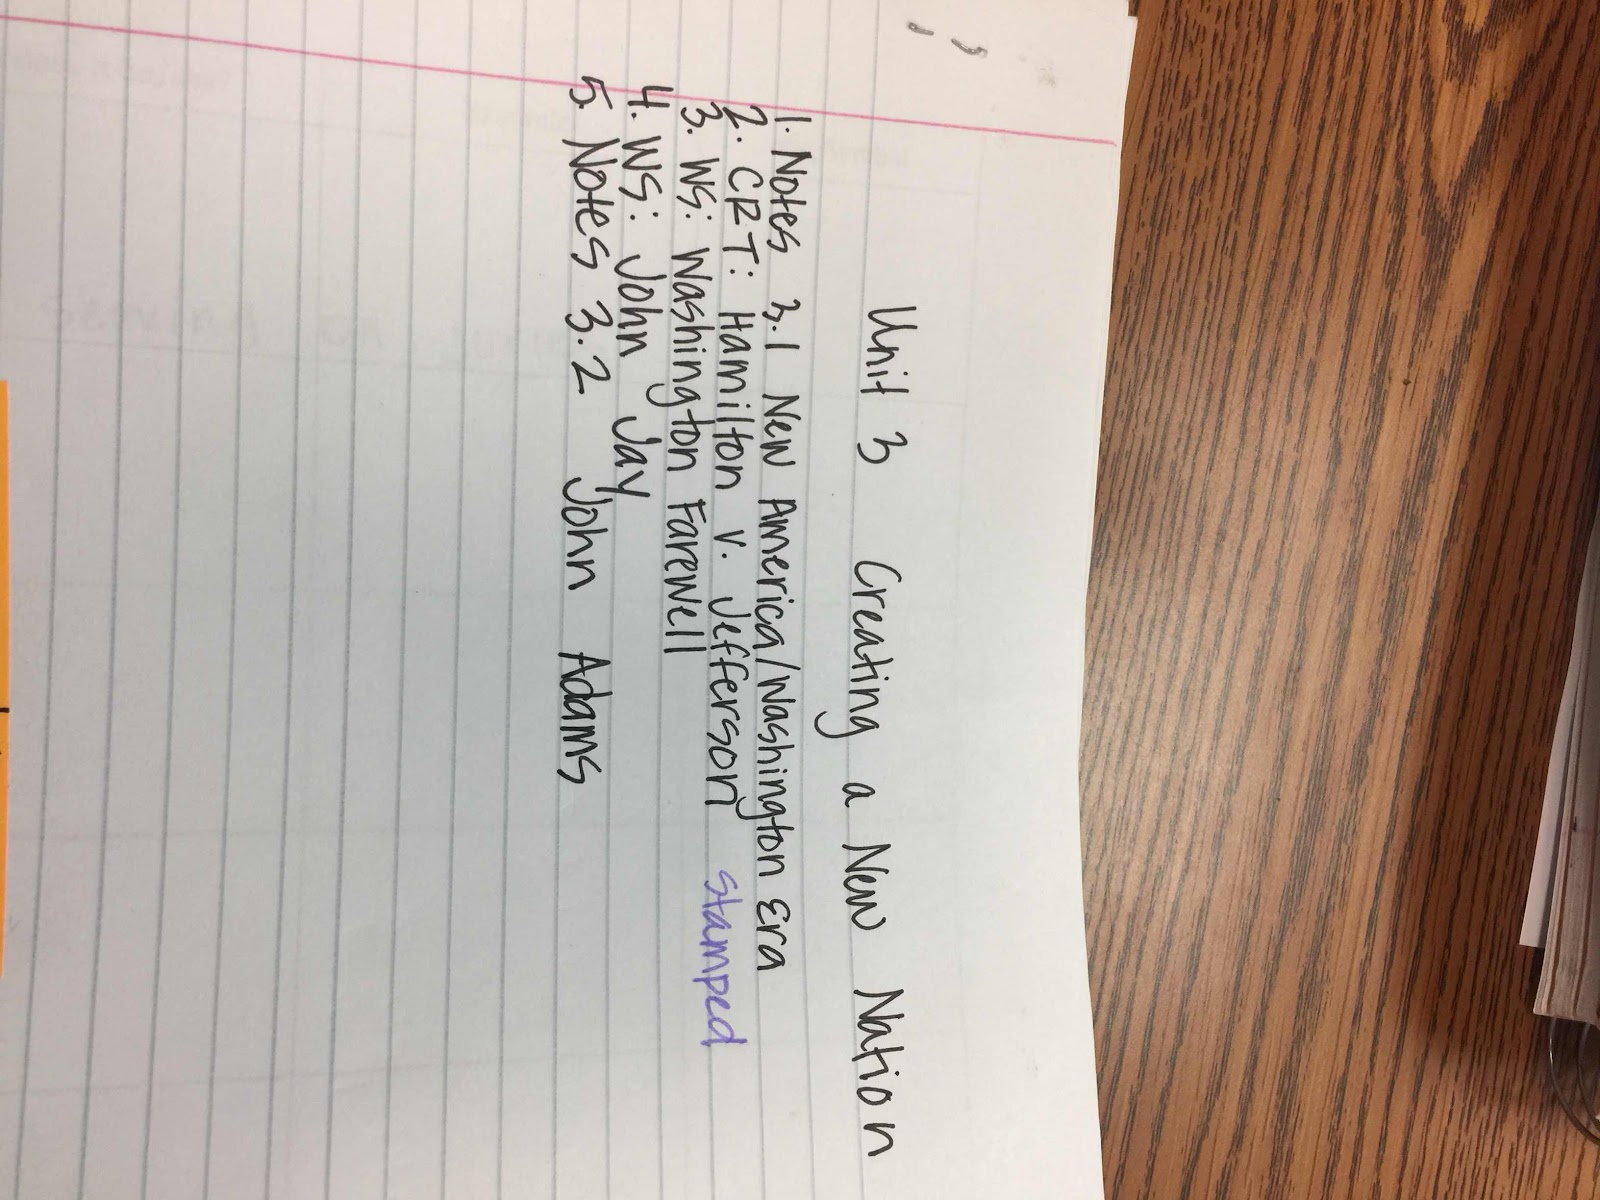 Unit 3 Creating a New Nation
1. Notes 3.1 New America/Washington Era
2. CRT: Hamilton v. Jefferson stamped
3. WS: Washington Farewell
4. WS: John Jay
5. Notes 3.2 John Adams